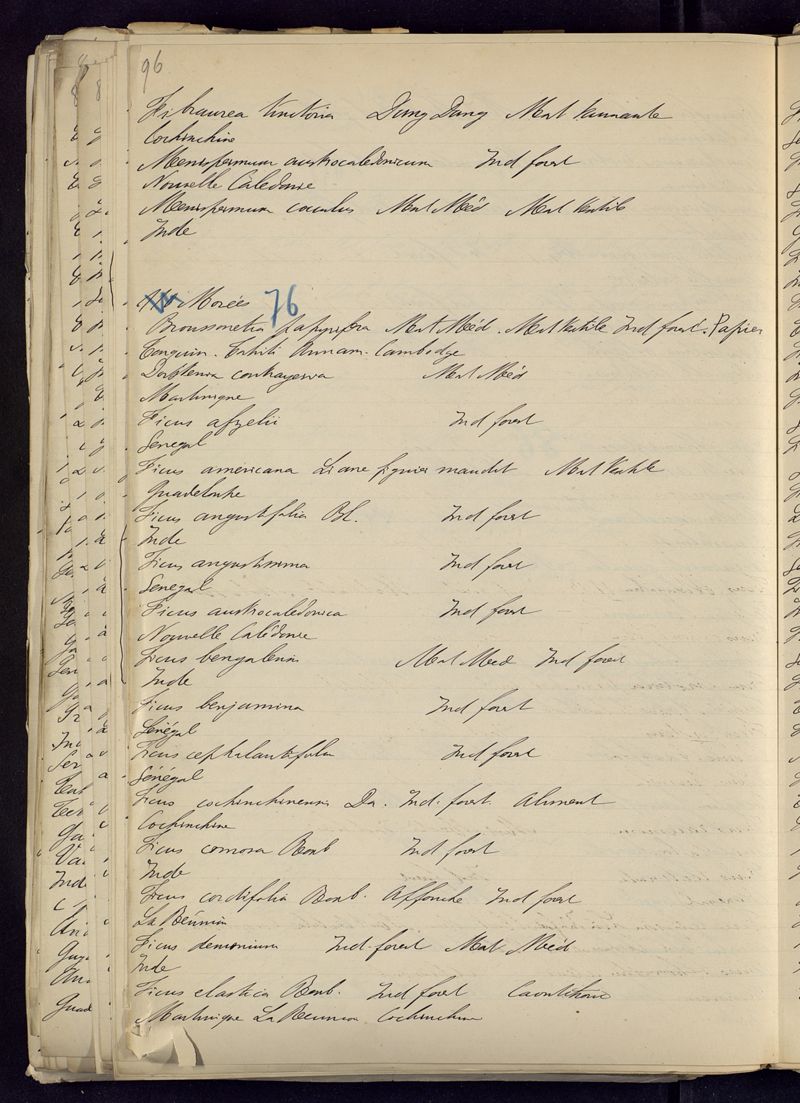 96
Fibraurea tinctoria Dang Dang Mat tannante
Cochinchine
Menispermum austrocaledonicum Ind forest
Nouvelle Calédonie
Menispermum coculus Mat Méd Mat textile
Inde
Morées 76
Broussonetia papyrifera Mat Méd. Mat textile Ind forest. Papier
Tonquin. Tahiti Annam. Cambodge
Dorstenia contrayerva Mat Méd
Martinique
Ficus afzelii Ind forest
Senegal
Ficus americana Liane figuier maudit Mat textile
Guadeloupe
Ficus angustifolia Bl. Ind forest
Inde
Ficus angustissima Ind forest
Senegal
Ficus austrocaledonica Ind forest
Nouvelle Calédonie
Ficus bengalensis Mat Med Ind forest
Inde
Ficus benjamina Ind forest
Sénégal
Ficus cephalantifolia Ind forest
Sénégal
Ficus cochinchinensis Da. Ind. forest. Aliment
Cochinchine
Ficus comosa Roxb Ind forest
Inde
Ficus cordifolia Roxb. Affouche Ind forest
La Réunion
Ficus demonium Ind. forest Mat Méd
Inde
Ficus elastica Roxb. Ind forest Caoutchouc
Martinique La Réunion Cochinchine